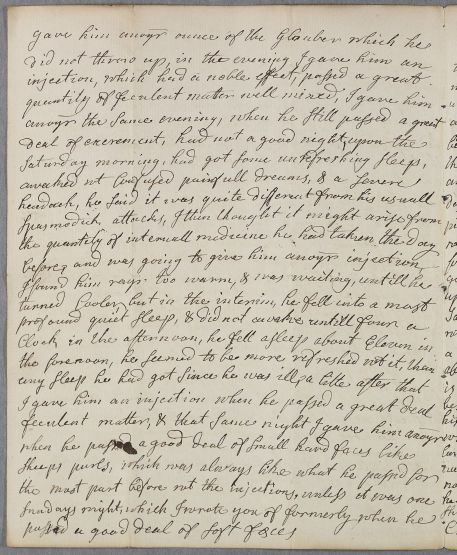 gave him anoyr ounce of the Glauber which he
did not throw up, in the evening I gave him an
injection, which had a noble effect, passed a great
quantity of feculent matter well mixed, I gave him
anoyr the same evening, when he still passed a great
deal of excrement, had not a good night, upon the
Saturday morning, had got some unrefreshing sleeps,
awaked wt confused painfull dreams, & a severe
headach, he said it was quite different from his usuall
spasmodick attacks, I then thought it might arise from
the quantity of internall medicine he had taken, the day
before, and was going to give him anoyr injection,
I found him rayr too warm, & was waiting, untill he
turned cooler, but in the interim, he fell into a most
profound quiet sleep, & did not awake untill four a
Clock in the afternoon, he fell asleep about Eleven in
the forenoon, he seemed to be more refreshed wt it, than
any sleep he had got since he was ill, a little after that
I gave him an injection when he passed a great deal
feculent matter, & that same night I gave him anoyr
when he passed a good deal of small hard faces like
sheeps purls, which was always like what he passed for
the most part before wt the injections, unless it was one
Sundays night, which I wrote you of formerly when he
passed a good deal of soft faces